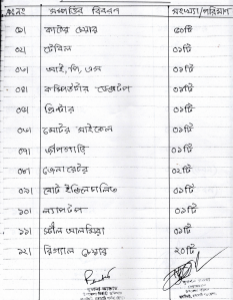 ক্রঃনং সম্পত্তির বিবরন সংখ্যা/পরিমাণ
০১। কাঠের চেয়ার ৫০টি
০২। টেবিল ০১টি
০৩। আই,পি,এস ০১টি
০৪। কম্পিউটার ডেক্সটপ ০১টি
০৫। প্রিন্টার ০১টি
০৬। মোটর সাইকেল ০১টি
০৭। ০১টি
০৮। জেনারেটর ০২টি
০৯। বোট ইঞ্জিনচালিত ০১টি
১০। ল্যাপটপ ০১টি
১১। স্টীল আলমিরা ০১টি
১২। রিভলবিং চেয়ার ২০টি